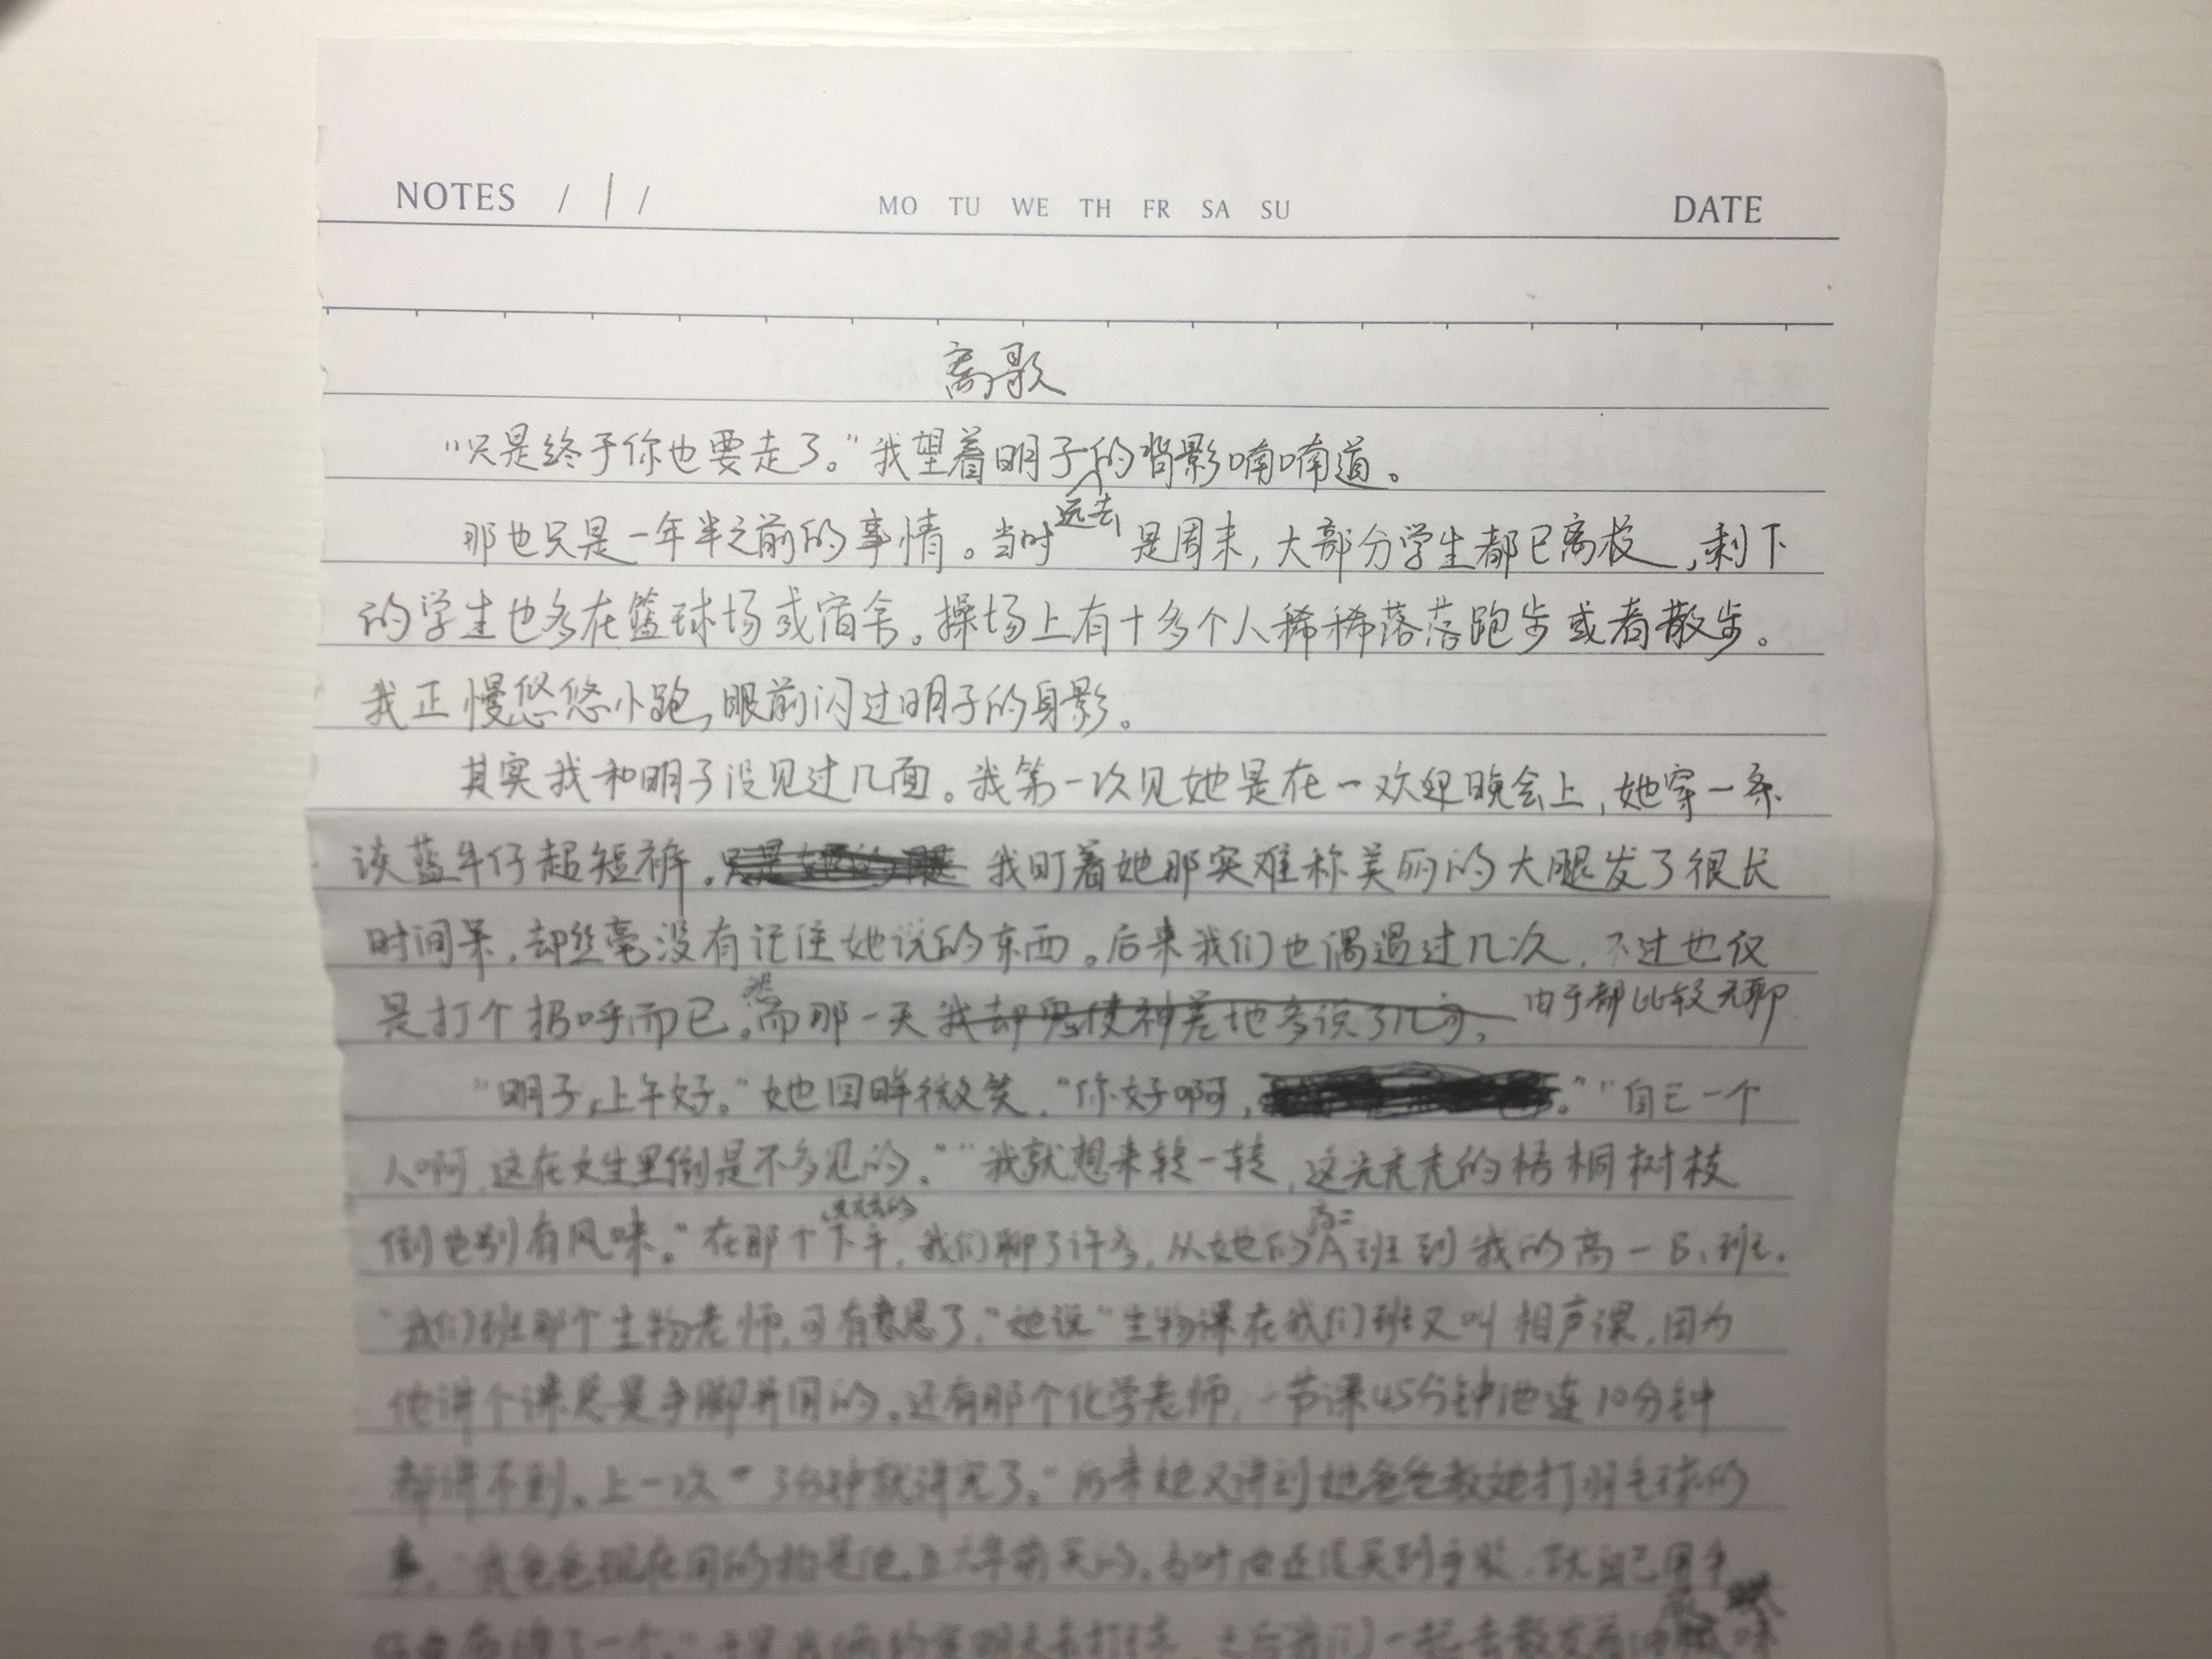 NOTES / 1 / MO TU WE TH FR SA SU DATE
离歌
“只是终于你也要走了。”我望着明子远去的背影喃喃道。
那也只是一年半之前的事情。当时是周末,大部分学生都已离校,剩下
的学生也多在篮球场或宿舍。操场上有十多个人稀稀落落跑步或者散步。
我正慢悠悠小跑,眼前闪过明子的身影。
其实我和明子没见过几面。我第一次见她是在一欢迎晚会上,她穿一条
该蓝牛仔超短裤。我盯着她那实难称美丽的大腿发了很长
时间呆,却丝毫没有记住她说的东西。后来我们也偶遇过几次,不过也仅
是打个招呼而已。而那一天我却鬼使神差地多说了几句, 由于都比较无聊
“明子,上午好。”她回眸微笑,“你好啊,。”“自己一个
人啊,这在女生里倒是不多见的。”“我就想来转一转,这光秃秃的梧桐树枝
倒也别有风味。”在那个下午,我们聊了许多,从她的高二A班到我的高一B班。
“我们班那个生物老师,可有意思了。”她说“生物课在我们班又叫相声课,因为
他讲个课总是手脚并用的。还有那个化学老师,一节课45分钟他连10分钟
都讲不到。上一次 3分钟就讲完了。”后来她又讲到她爸爸教她打羽毛球的
事。“我爸爸现在用的拍是他五六年前买的,当时他还没买到手胶,就自己用